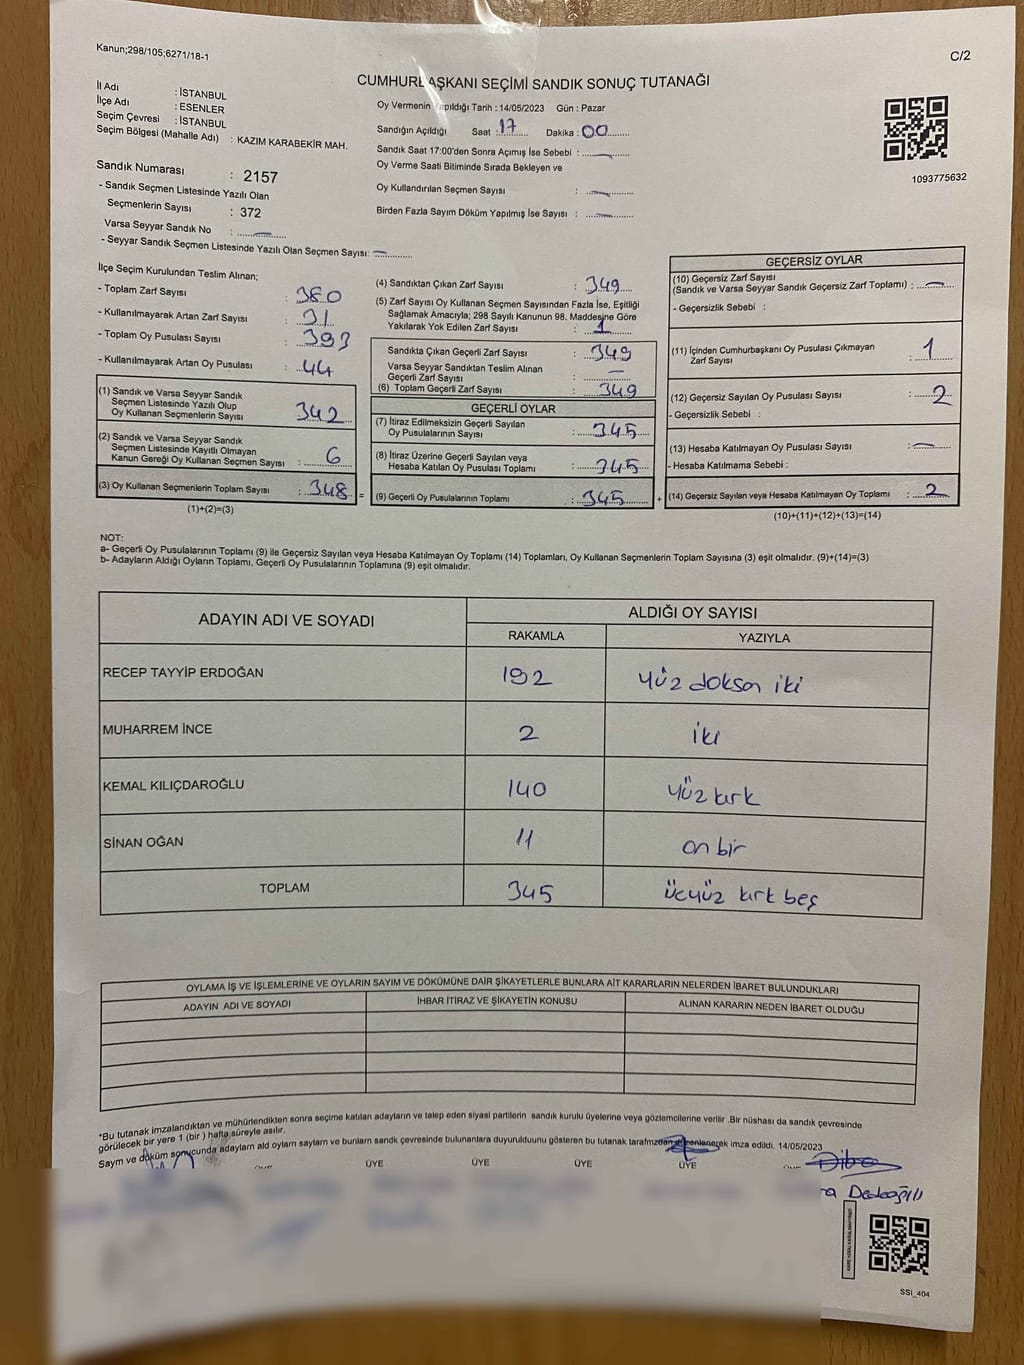 Kanun;298/105;6271/18-1
C/2
CUMHURBAŞKANI SEÇİMİ SANDIK SONUÇ TUTANAĞI
İl Adı : İSTANBUL
İlçe Adı : ESENLER
Seçim Çevresi : İSTANBUL
Seçim Bölgesi (Mahalle Adı) : KAZIM KARABEKİR MAH.
Sandık Numarası : 2157
- Sandık Seçmen Listesinde Yazılı Olan
Seçmenlerin Sayısı : 372
Varsa Seyyar Sandık No :
- Seyyar Sandık Seçmen Listesinde Yazılı Olan Seçmen Sayısı:
Oy Vermenin Yapıldığı Tarih : 14/05/2023 Gün : Pazar
Sandığın Açıldığı Saat : 17 Dakika : 00
Sandık Saat 17:00'den Sonra Açımış İse Sebebi :
Oy Verme Saati Bitiminde Sırada Bekleyen ve
Oy Kullandırılan Seçmen Sayısı :
Birden Fazla Sayım Döküm Yapılmış İse Sayısı :
1093775632
İlçe Seçim Kurulundan Teslim Alınan;
- Toplam Zarf Sayısı : 380
- Kullanılmayarak Artan Zarf Sayısı : 31
- Toplam Oy Pusulası Sayısı : 393
- Kullanılmayarak Artan Oy Pusulası : 44
(1) Sandık ve Varsa Seyyar Sandık
Seçmen Listesinde Yazılı Olup
Oy Kullanan Seçmenlerin Sayısı : 342
(2) Sandık ve Varsa Seyyar Sandık
Seçmen Listesinde Kayıtlı Olmayan
Kanun Gereği Oy Kullanan Seçmen Sayısı : 6
(3) Oy Kullanan Seçmenlerin Toplam Sayısı : 348 =
(1)+(2)=(3)
(4) Sandıktan Çıkan Zarf Sayısı : 349
(5) Zarf Sayısı Oy Kullanan Seçmen Sayısından Fazla İse, Eşitliği
Sağlamak Amacıyla; 298 Sayılı Kanunun 98. Maddesine Göre
Yakılarak Yok Edilen Zarf Sayısı : 1
Sandıkta Çıkan Geçerli Zarf Sayısı : 349
Varsa Seyyar Sandıktan Teslim Alınan
Geçerli Zarf Sayısı :
(6) Toplam Geçerli Zarf Sayısı : 349
GEÇERLİ OYLAR
(7) İtiraz Edilmeksizin Geçerli Sayılan
Oy Pusulalarının Sayısı : 345
(8) İtiraz Üzerine Geçerli Sayılan veya
Hesaba Katılan Oy Pusulası Toplamı : 345
(9) Geçerli Oy Pusulalarının Toplamı : 345 +
GEÇERSİZ OYLAR
(10) Geçersiz Zarf Sayısı
(Sandık ve Varsa Seyyar Sandık Geçersiz Zarf Toplamı) :
- Geçersizlik Sebebi :
(11) İçinden Cumhurbaşkanı Oy Pusulası Çıkmayan
Zarf Sayısı : 1
(12) Geçersiz Sayılan Oy Pusulası Sayısı : 2
- Geçersizlik Sebebi :
(13) Hesaba Katılmayan Oy Pusulası Sayısı :
- Hesaba Katılmama Sebebi :
(14) Geçersiz Sayılan veya Hesaba Katılmayan Oy Toplamı : 2
(10)+(11)+(12)+(13)=(14)
NOT:
a- Geçerli Oy Pusulalarının Toplamı (9) ile Geçersiz Sayılan veya Hesaba Katılmayan Oy Toplamı (14) Toplamları, Oy Kullanan Seçmenlerin Toplam Sayısına (3) eşit olmalıdır. (9)+(14)=(3)
b- Adayların Aldığı Oyların Toplamı, Geçerli Oy Pusulalarının Toplamına (9) eşit olmalıdır.
ADAYIN ADI VE SOYADI
ALDIĞI OY SAYISI
RAKAMLA YAZIYLA
RECEP TAYYİP ERDOĞAN 192 yüz doksan iki
MUHARREM İNCE 2 iki
KEMAL KILIÇDAROĞLU 140 yüz kırk
SİNAN OĞAN 11 on bir
TOPLAM 345 üçyüz kırk beş
OYLAMA İŞ VE İŞLEMLERİNE VE OYLARIN SAYIM VE DÖKÜMÜNE DAİR ŞİKAYETLERLE BUNLARA AİT KARARLARIN NELERDEN İBARET BULUNDUKLARI
ADAYIN ADI VE SOYADI İHBAR İTİRAZ VE ŞİKAYETİN KONUSU ALINAN KARARIN NEDEN İBARET OLDUĞU
*Bu tutanak imzalandıktan ve mühürlendikten sonra seçime katılan adayların ve talep eden siyasi partilerin sandık kurulu üyelerine veya gözlemcilerine verilir .Bir nüshası da sandık çevresinde
görülecek bir yere 1 (bir ) hafta süreyle asılır.
Saym ve döküm sonucunda adayların ald oylarn saylarn ve bunların sandık çevresinde bulunanlara duyurulduunu gösteren bu tutanak tarafmzdan düzenlenerek imza edildi. 14/05/2023
ÜYE ÜYE ÜYE ÜYE
SSI_404